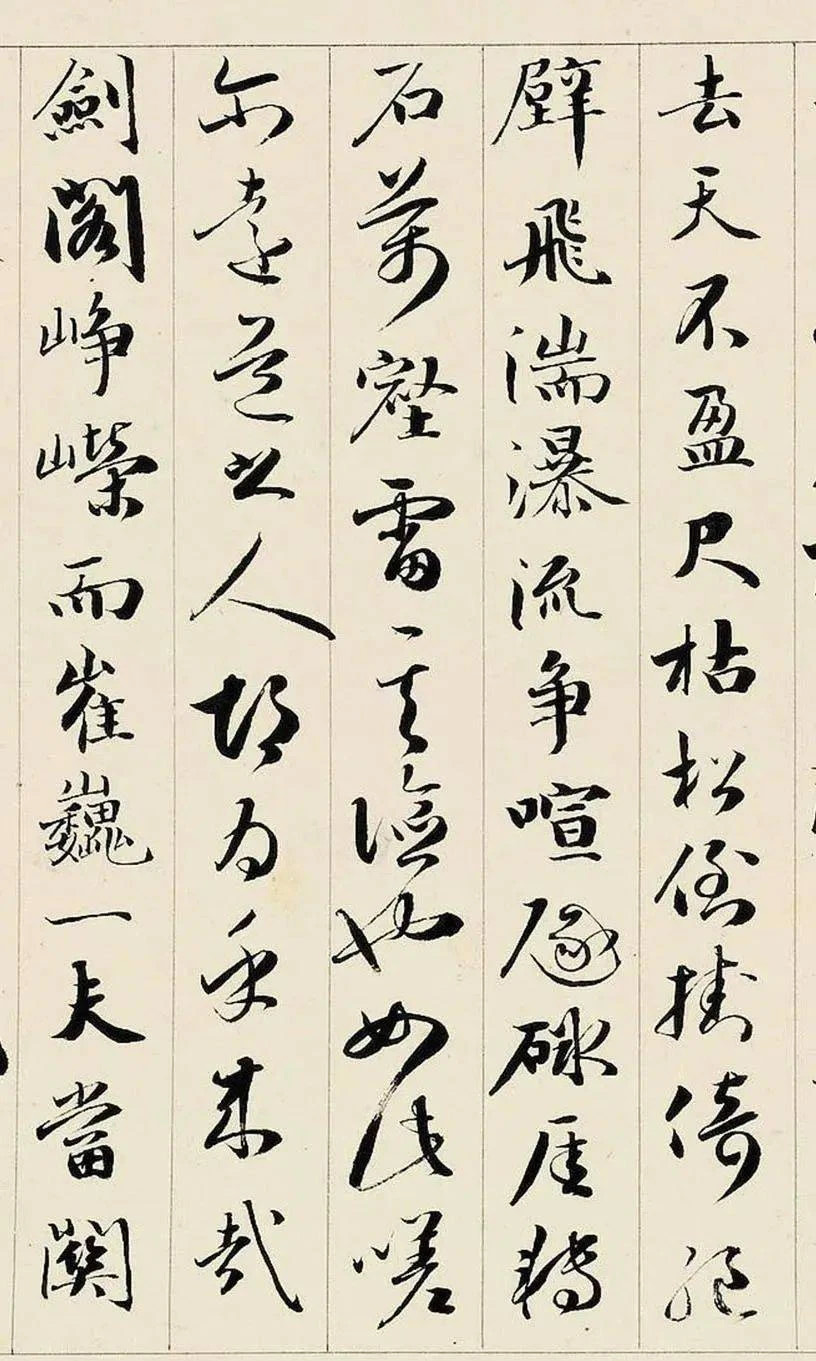 去天不盈尺枯松倒挂倚絕
壁飛湍瀑流争喧豗砯厓轉
石萬壑雷一其險也如此嗟
尔遠道之人胡為乎來哉
劍閣崢嶸而崔巍一夫當關